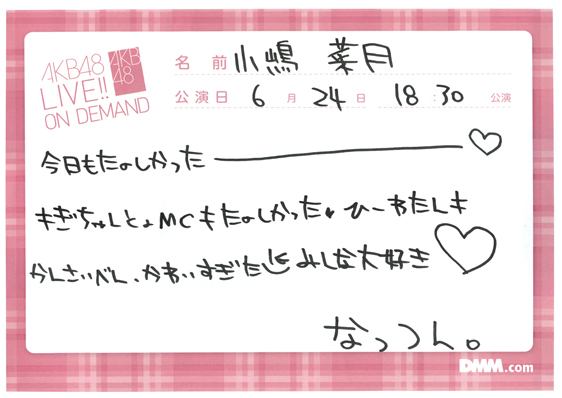 AKB48
LIVE!!
ON DEMAND
AKB
48
名前 小嶋 菜月
公演日 6月24日 18:30 公演
今日もたのしかったー♡
もぎちゃんとょMCもたのしかった♥ ひーわたしも
かんさいべん、かわいすぎた みんな大好き♡
なっつん。
DMM.com